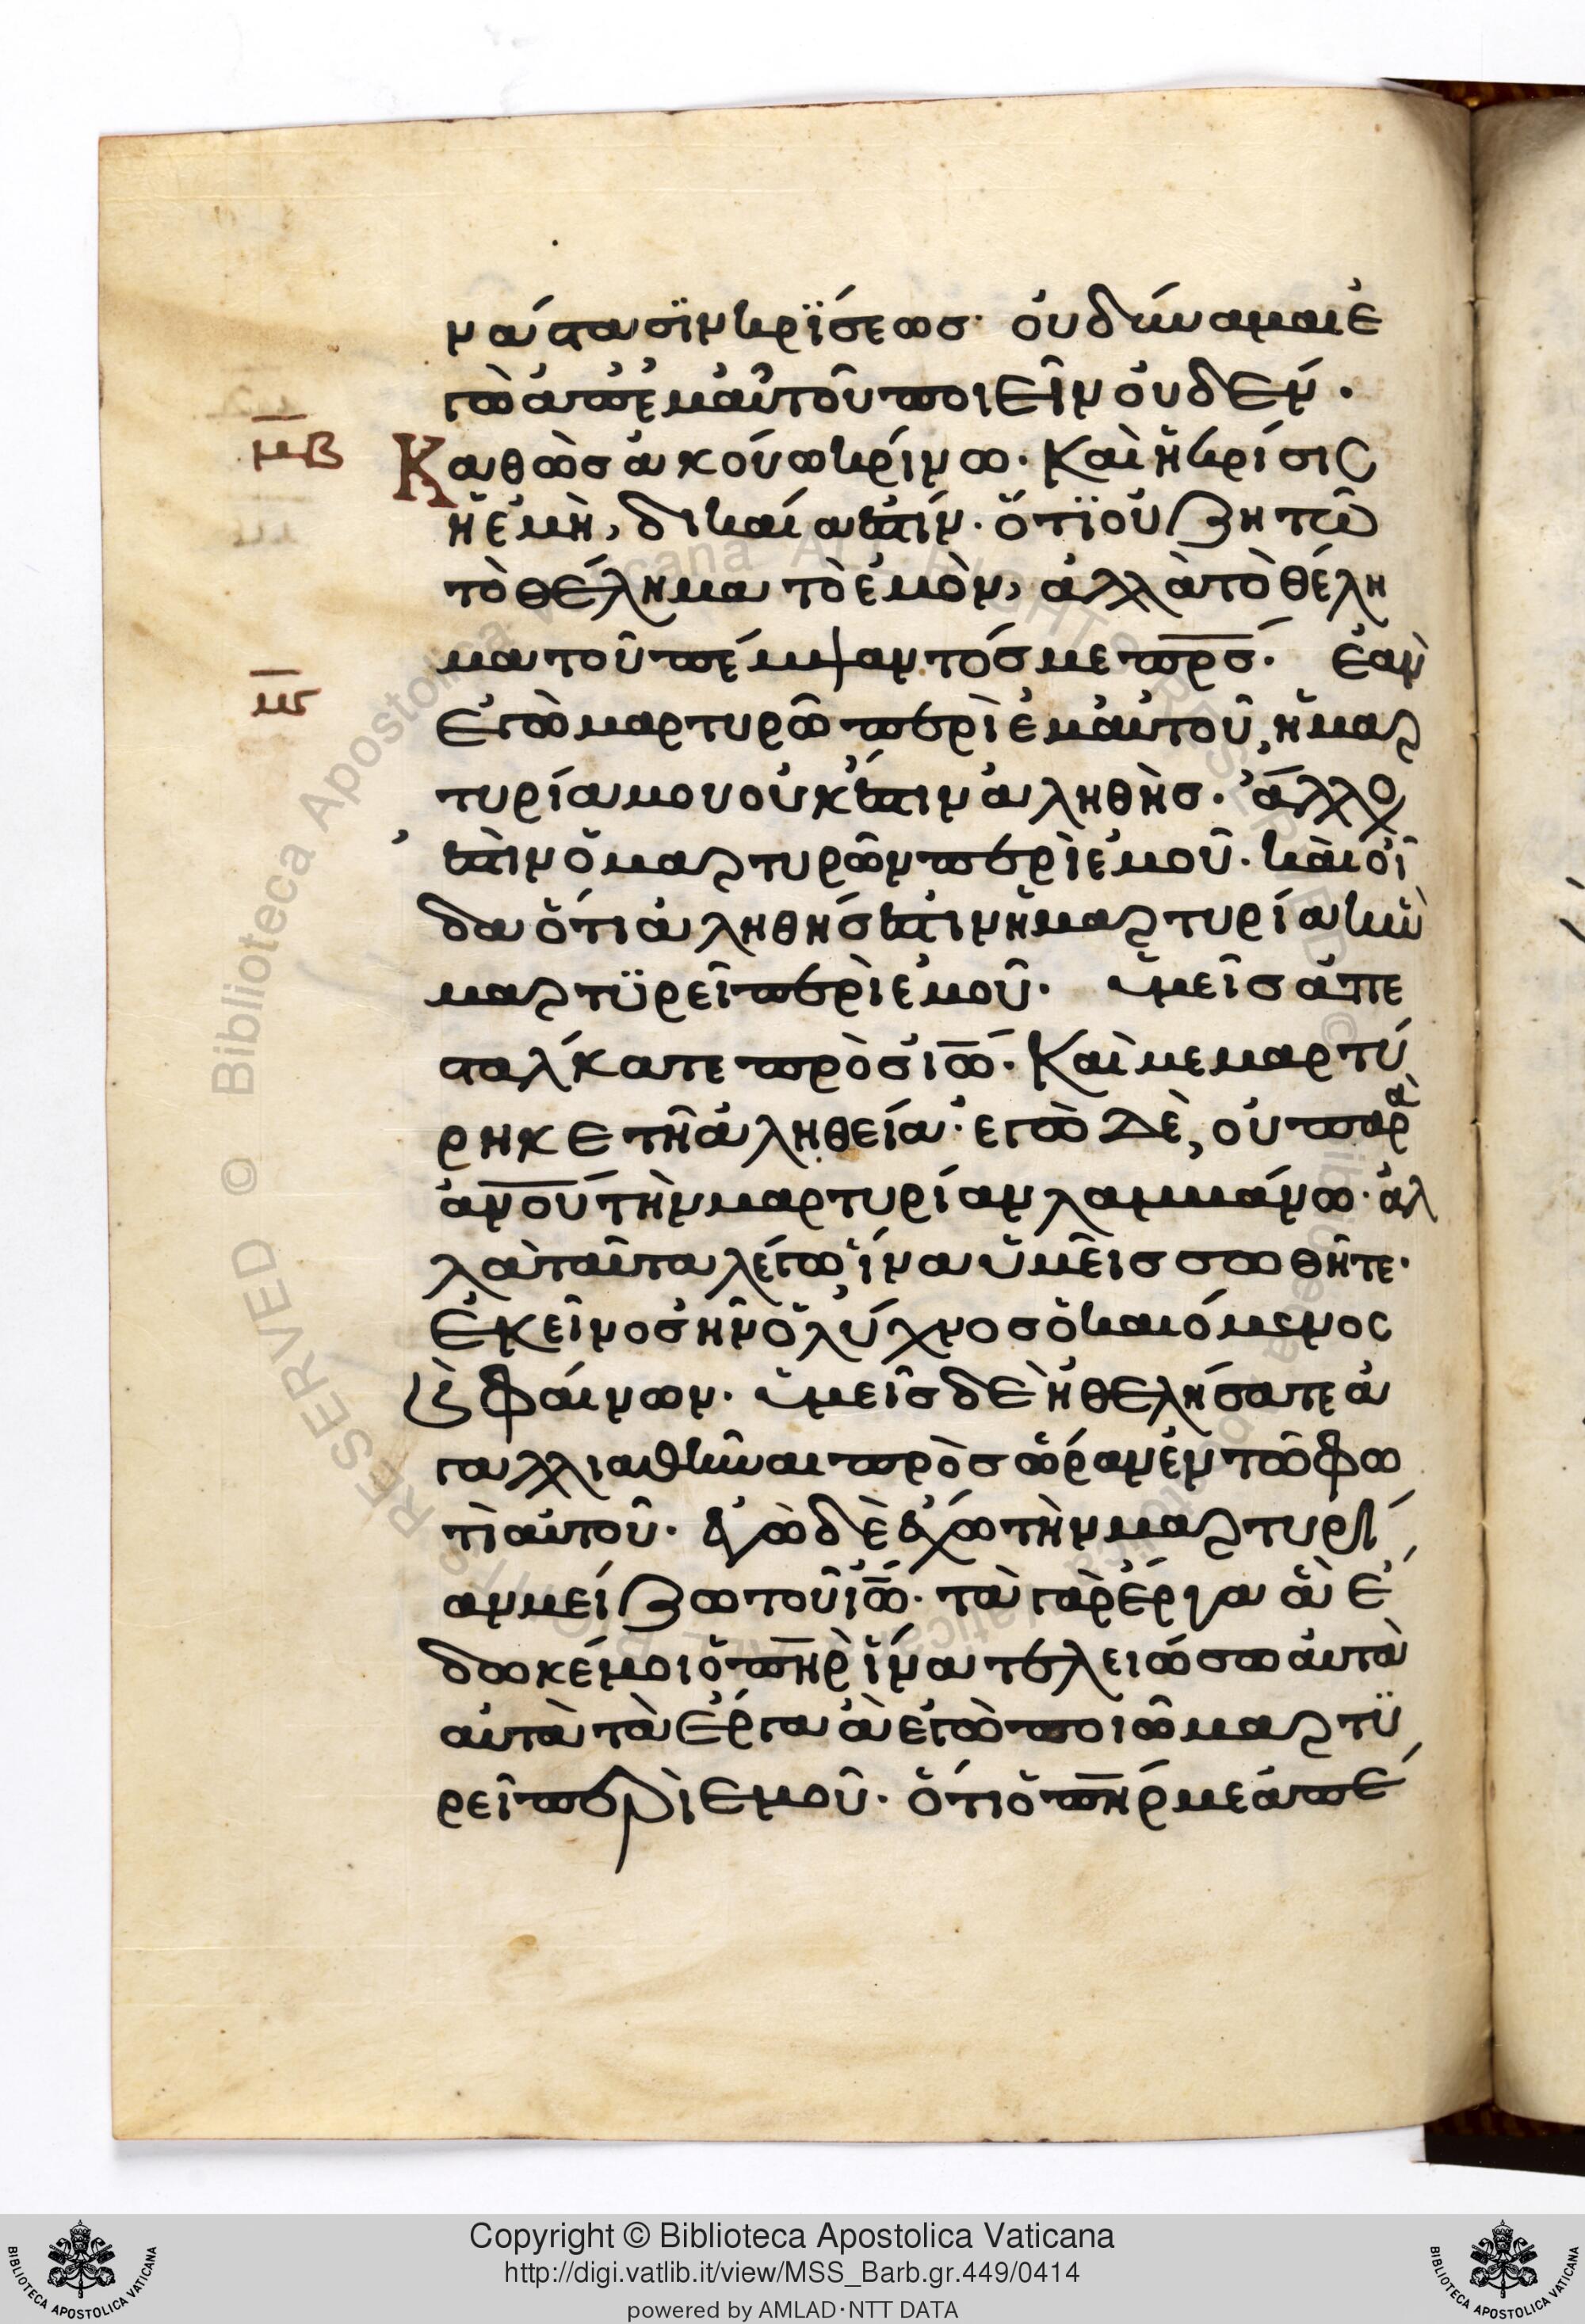 ναστασϊν κρϊσεως· οὐ δύναμαι ἐ
γὼ ἀπ' ἐμαὐτοῦ ποιεῖν οὐδέν·
μβ Καθὼς ἀκούω κρίνω· Καὶ ἡ κρίσις
ἡ ἐμὴ, δικαία ἐστίν· ὅτϊ οὐ ζητῶ
τὸ θέλημα τὸ ἐμὸν, ἀλλὰ τὸ θέλη
μα τοῦ πέμψαντός με πρς· ἐὰν
μγ ἐγὼ μαρτυρῶ περὶ ἐμαὐτοῦ, ἡ μαρ
τυρία μου οὐκ ἔστιν ἀληθὴς· ἄλλος
ἐστὶν ὁ μαρτυρῶν περὶ ἐμοῦ· καὶ οἶ
δα ὅτι ἀληθής ἐστιν ἡ μαρτυρία ἣν
μαρτϋρεῖ περὶ ἐμοῦ· ὑμεῖς ἀπε
σταλκατε πρὸς ἰω· Καὶ μεμαρτύ
ρηκε τῆ ἀληθεία· ἐγὼ δὲ, οὐ παρὰ
ἀνου τὴν μαρτυρίαν λαμμάνω· ἀλ
λὰ ταῦτα λέγω ἵνα ὑμεῖς σωθῆτε·
ἐκεῖνος ἦν ὁ λύχνος ὁ καιόμενος
καὶ φαίνων· ὑμεῖς δὲ ἠθελήσατε ἀ
γαλλιαθῆναι πρὸς ὥραν ἐν τῶ φω
τὶ αὐτοῦ· ἐγὼ δὲ ἔχω τὴν μαρτυρί
αν μείζω τοῦ ἰω· τὰ γὰρ ἔργα ἃ ἔ
δωκέ μοι ὁ πηρ ἵνα τελειώσω αὐτὰ
αὐτὰ τὰ ἔργα ἃ ἐγὼ ποιῶ μαρτϋ
ρεῖ περὶ ἐμοῦ· ὅτι ὁ πηρ με ἀπέ
Copyright © Biblioteca Apostolica Vaticana
http://digi.vatlib.it/view/MSS_Barb.gr.449/0414
powered by AMLAD·NTT DATA